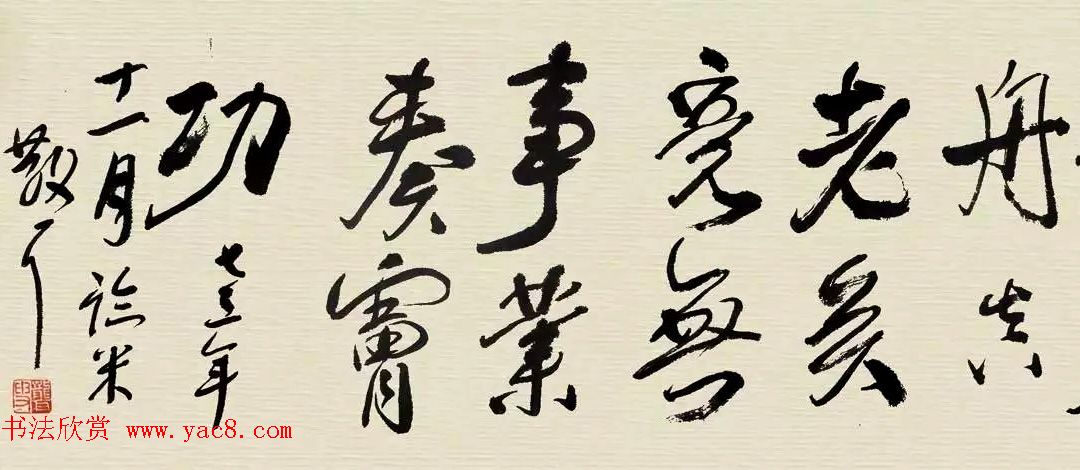 舟真
老矣
竟無
事業
奏膚
功
七三年
十一月临米
散耳
书法欣赏 www.yac8.com